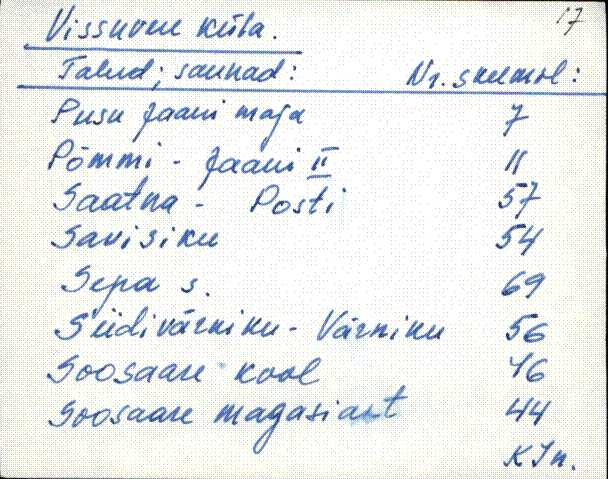 17
Vissuvere küla.
Talud; saunad: Nr. skeemol:
Pusu Jaani maja 7
Põmmi - Jaani II 11
Saatna - Posti 57
Savisiku 54
Sepa s. 69
Siidivärniku - Värniku 56
Soosaare kool 46
Soosaare magasiait 44